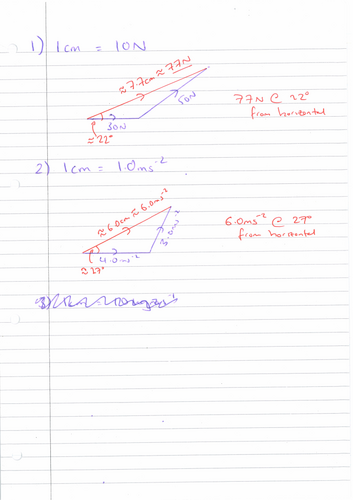 1) 1cm = 10N
≈ 7.7cm ≈ 77N
50N
30N
≈ 22°
77N @ 22°
from horizontal
2) 1cm = 1.0ms⁻²
≈ 6.0cm ≈ 6.0ms⁻²
3.0ms⁻²
4.0ms⁻²
≈ 27°
6.0ms⁻² @ 27°
from horizontal